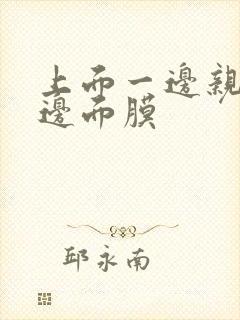 上而一邊親
邊而膜
邱永南